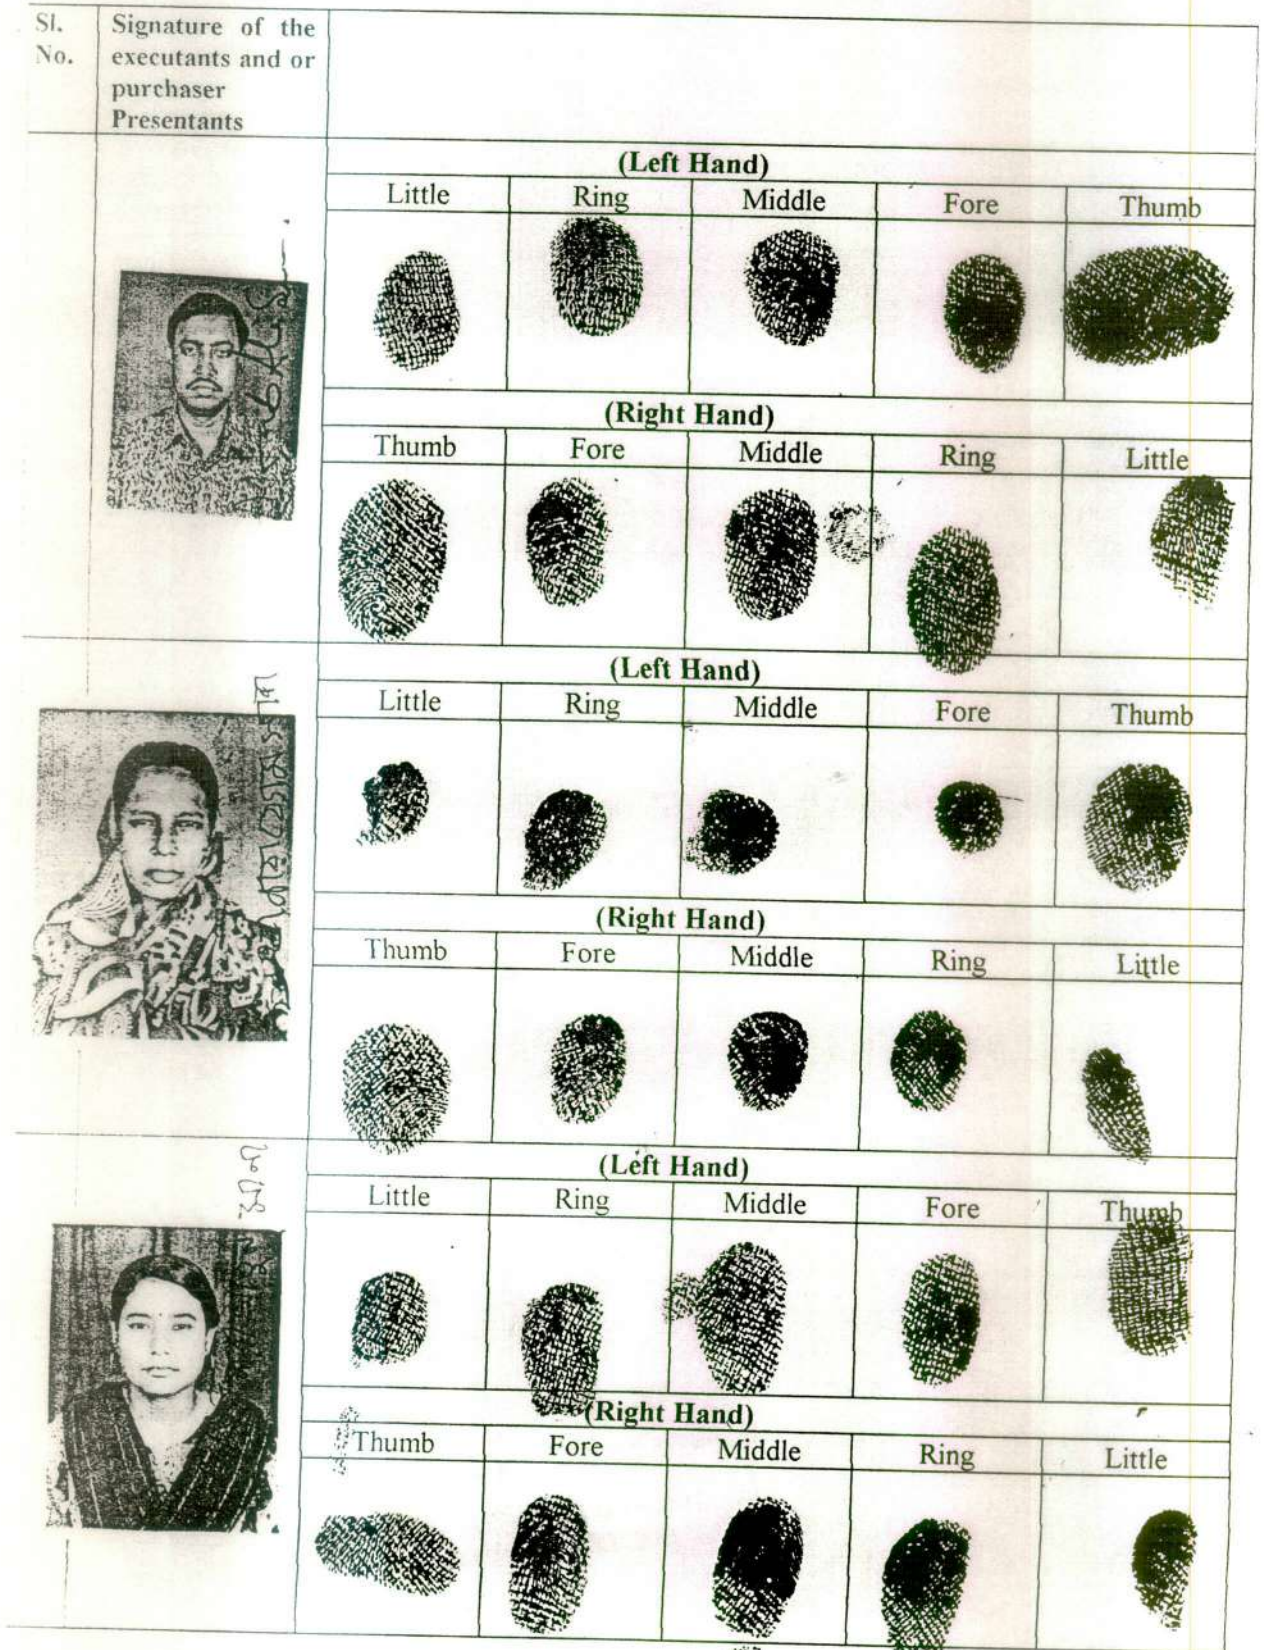 Sl. No.
Signature of the executants and or purchaser Presentants
(Left Hand)
Little Ring Middle Fore Thumb
(Right Hand)
Thumb Fore Middle Ring Little
(Left Hand)
Little Ring Middle Fore Thumb
(Right Hand)
Thumb Fore Middle Ring Little
(Left Hand)
Little Ring Middle Fore Thumb
(Right Hand)
Thumb Fore Middle Ring Little